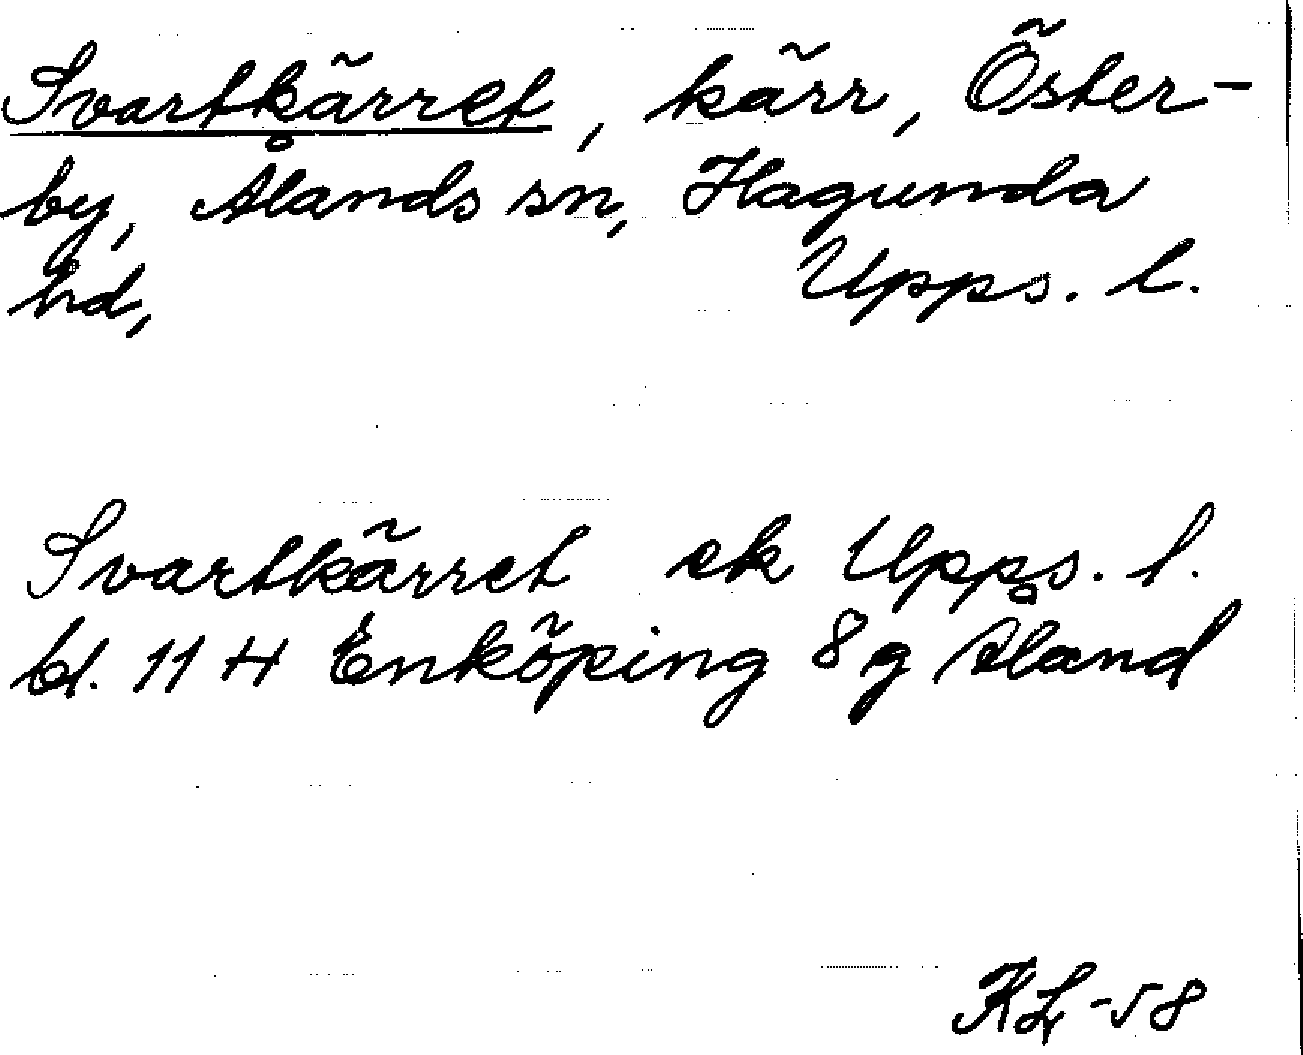 Svartkärret, kärr, Öster-
by, Ålands sn, Hagunda
hd, Upps. l.
Svartkärret ek Upps. l.
bl. 11 H Enköping 8 g Åland
KL -58